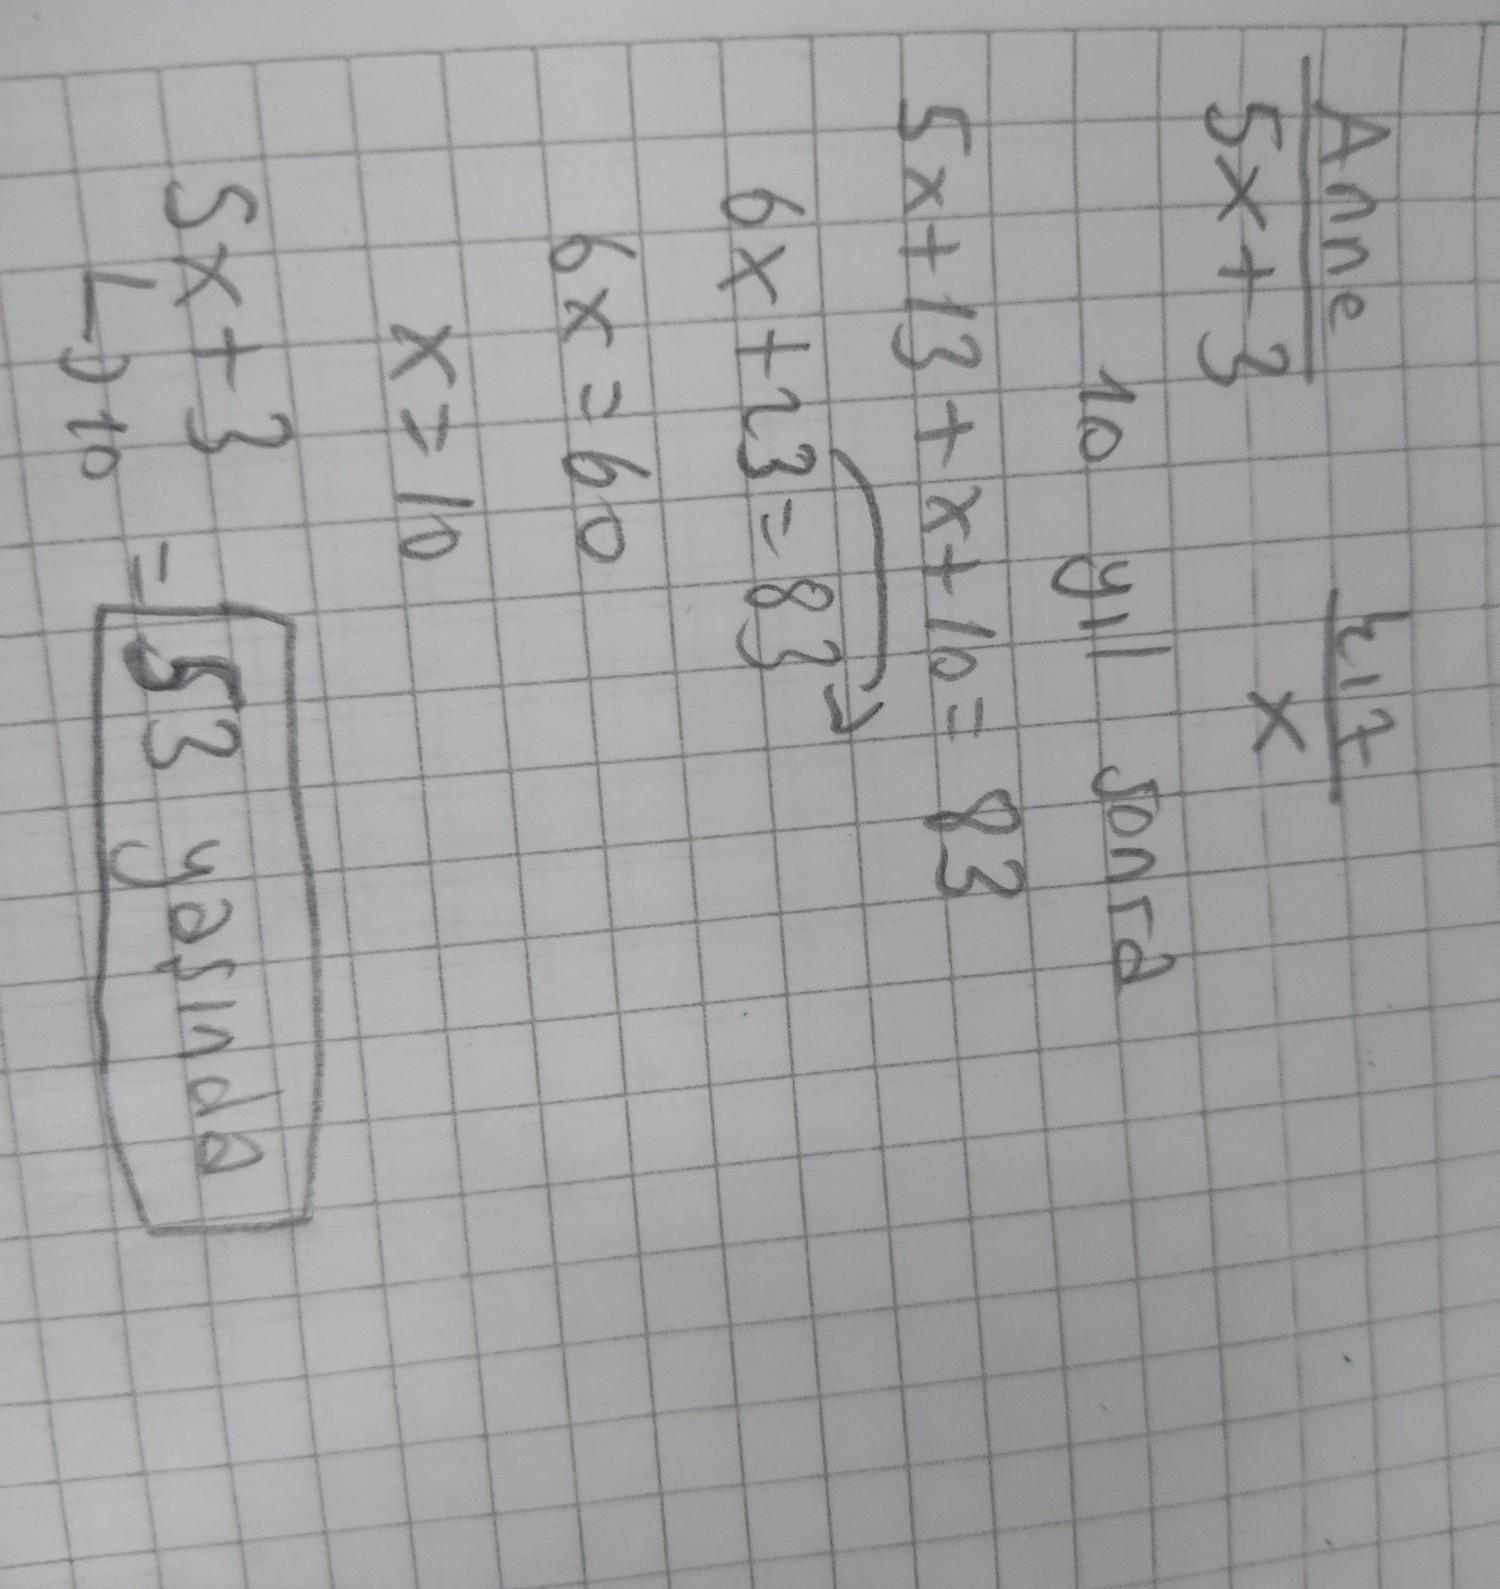 Anne kız
5x+3 x
10 yıl sonra
5x+13+x+10=83
6x+23=83
6x=60
x=10
5x+3
↳10 = 53 yaşında